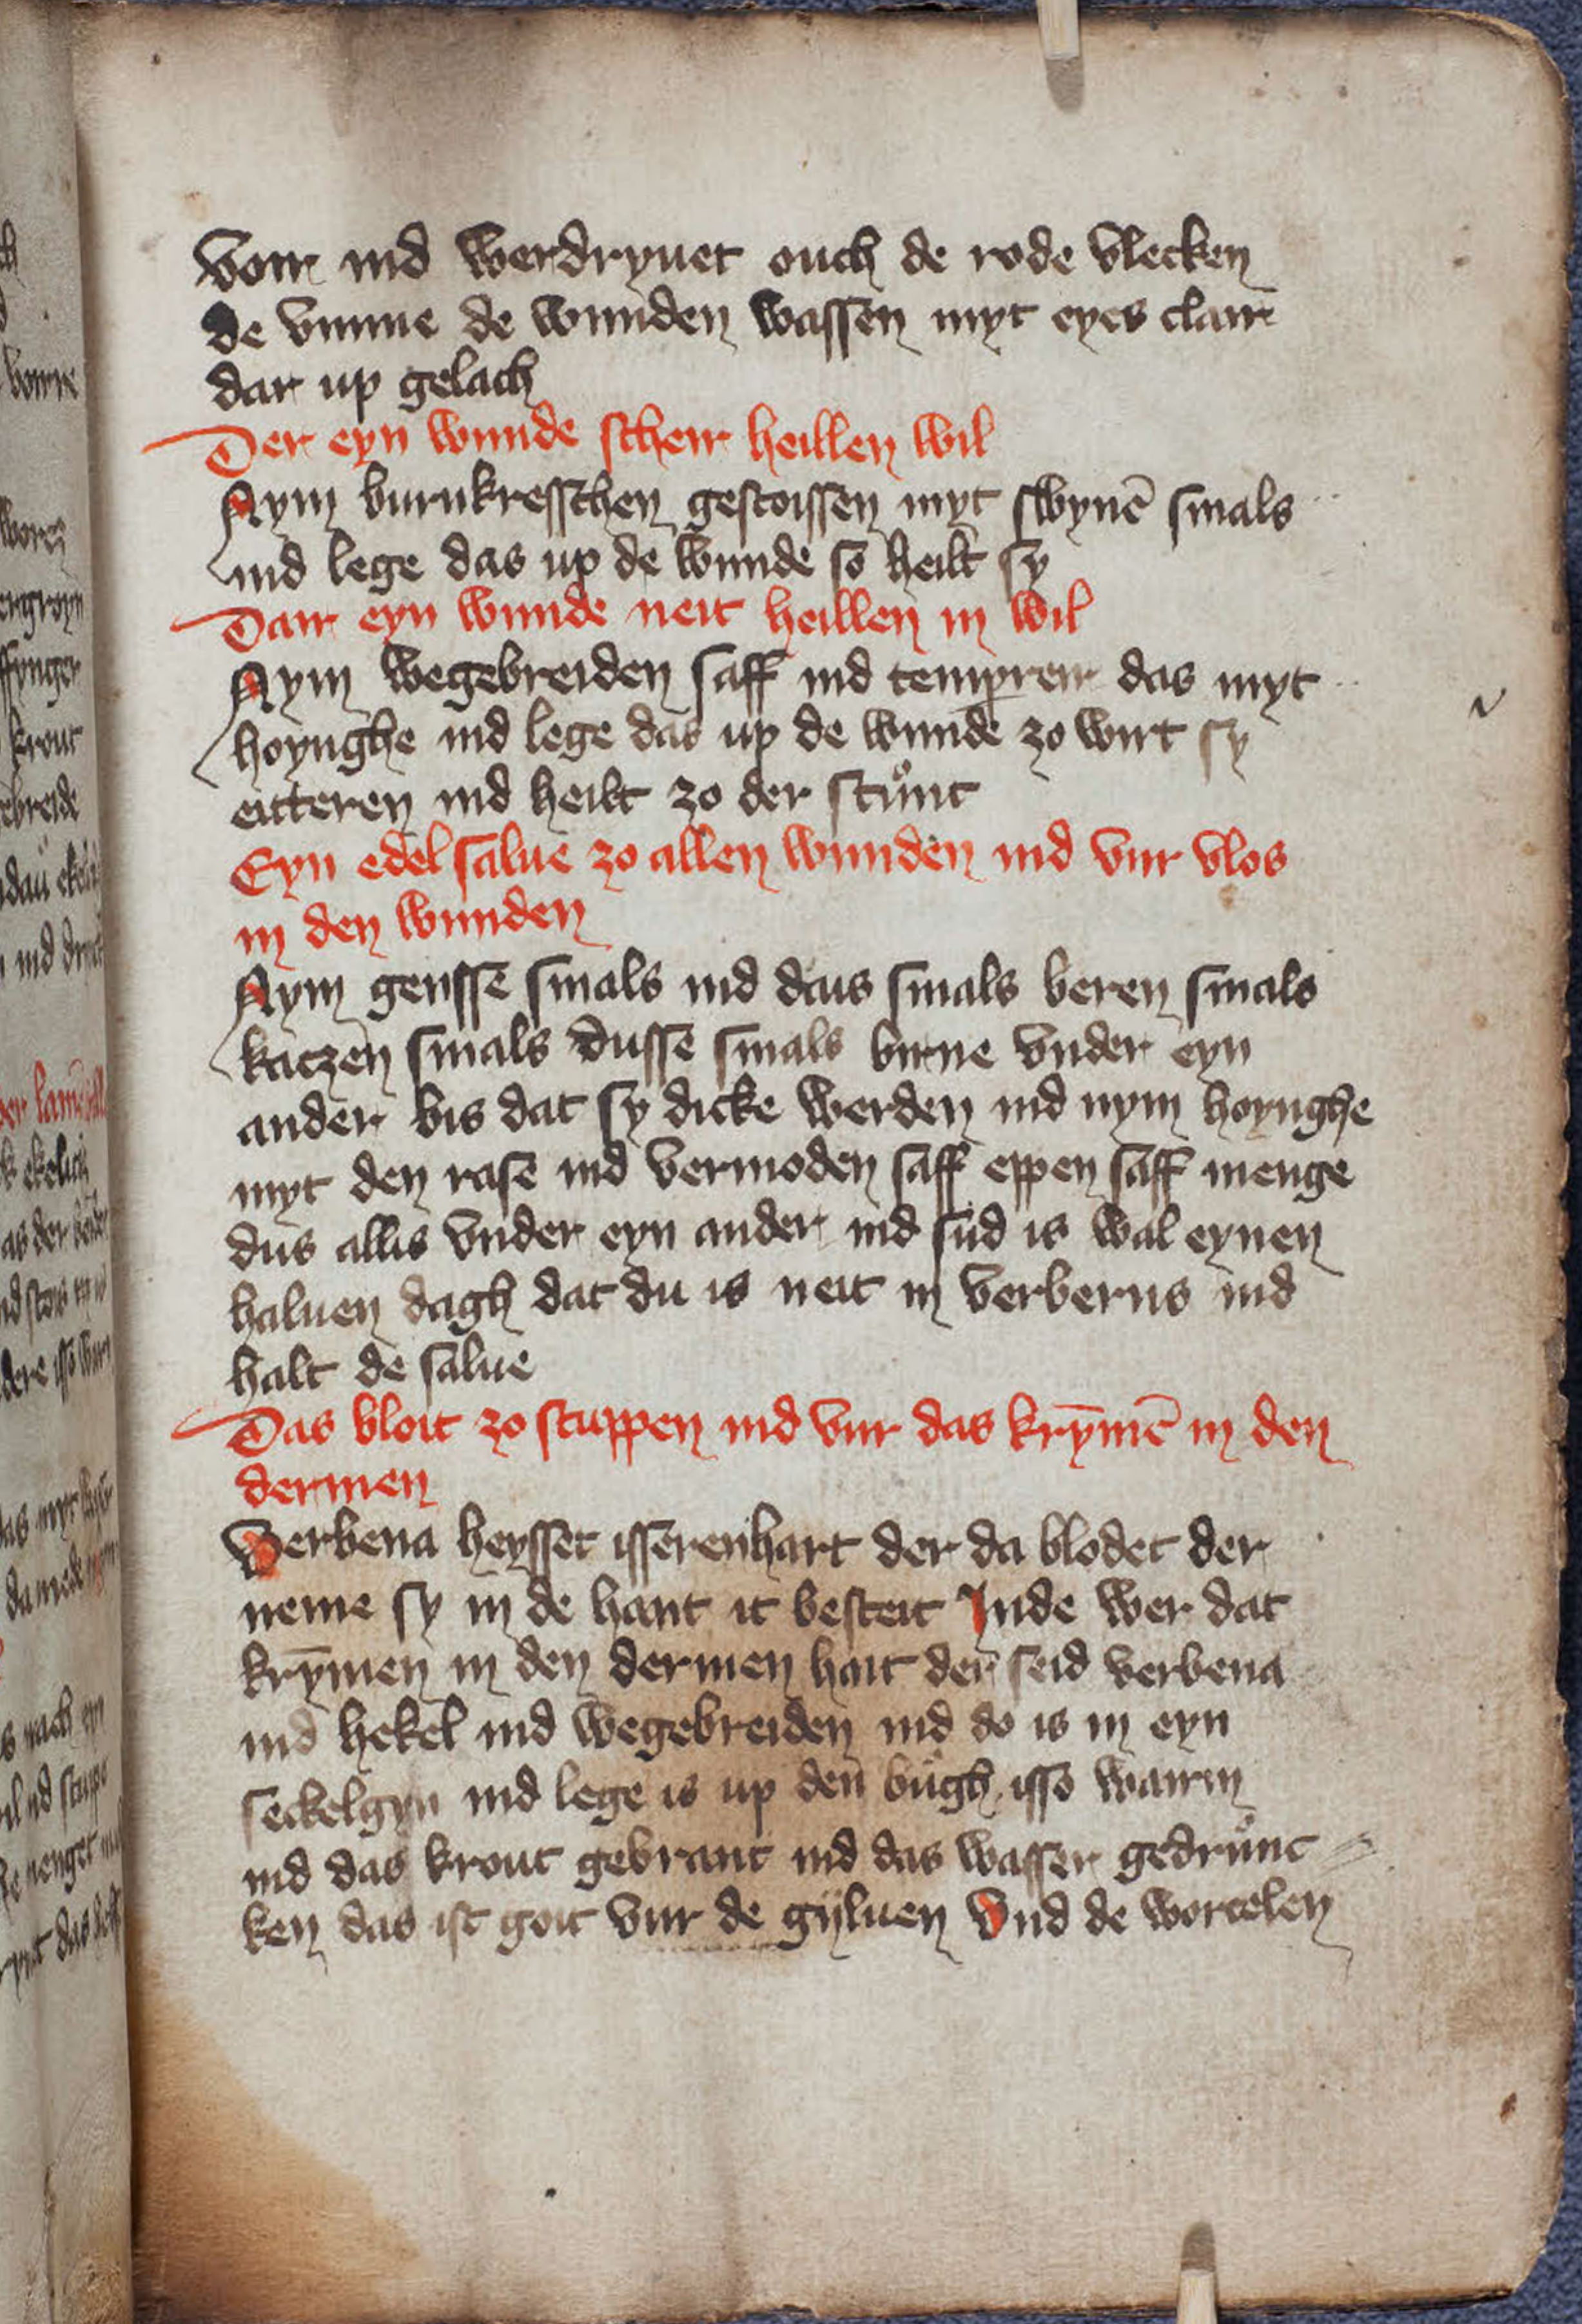 voir ind werdryuet ouch de rode vlecken
de vmme de wunden wassen myt eyes clair
dar up gelach
Der eyn wunde scheir heillen wil
Nym burnkresschen gestoissen myt swynē smals
ind lege das up de wunde so heilt sy
Dair eyn wunde neit heillen in wil
Nym wegebreiden saff ind tempreir das myt
hoynghe ind lege das up de wunde zo wirt sy
eitteren ind heilt zo der stůnt
Eyn edel salue zo allen wunden ind vur vlos
in den wunden
Nym gensse smals ind dais smals beren smals
katzen smals dusse smals birne vnder eyn
ander bis dat sy dicke werden ind nym hoynghe
myt den rase ind vermoden saff eppen saff menge
dus allis vnder eyn ander ind sud is wal eynen
haluen dagh dat du is neit in verberns ind
halt de salue
Das bloit zo stuppen ind vur das krȳmē in den
dermen
Verbena heysset isserenhart der da blodet der
neme sy in de hant it besteit Inde wer dat
krȳmen in den dermen hait der seid verbena
ind hekel ind wegebreiden ind do is in eyn
seckelgyn ind lege is up den bůgh isso wairm
ind das krout gebrant ind das wasser gedrůnc
ken das ist goit vur de gijluen Vnd de wortelen